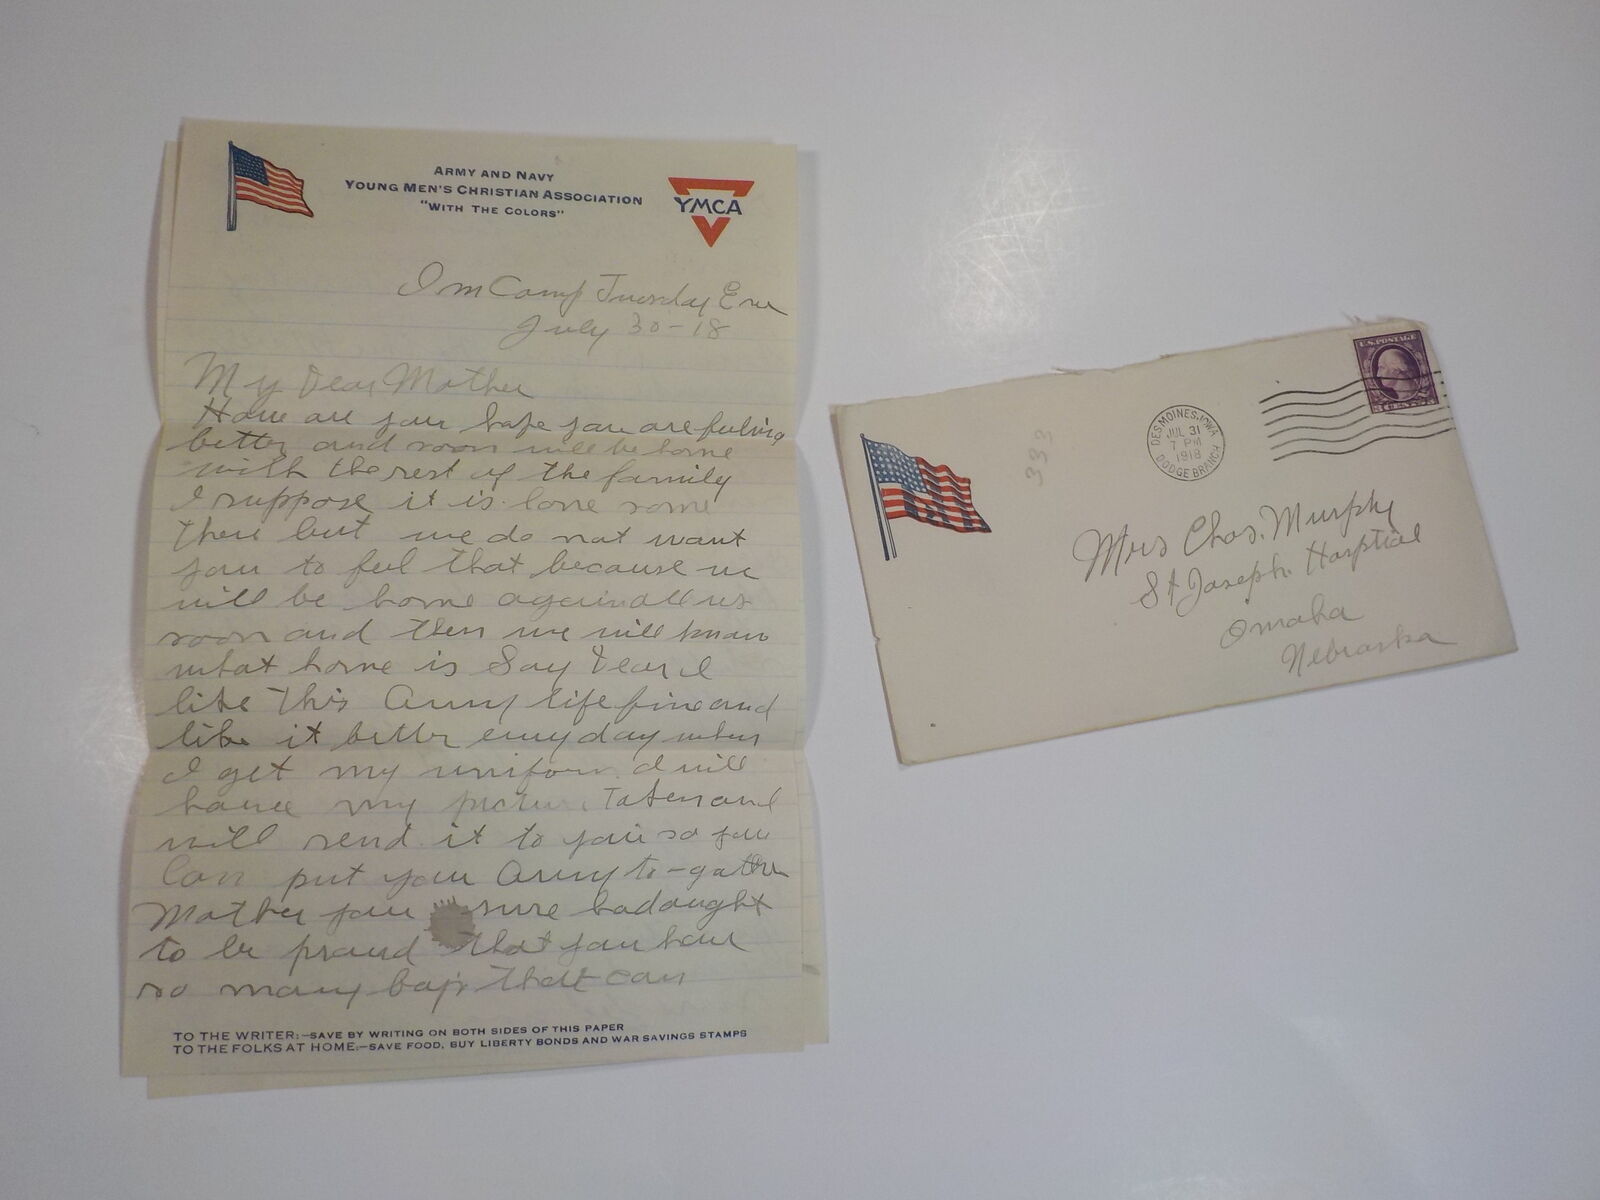 ARMY AND NAVY
YOUNG MEN'S CHRISTIAN ASSOCIATION
"WITH THE COLORS"
YMCA
In Camp Tuesday Eve
July 30-18
My Dear Mother
How are you hope you are feeling
better and soon will be home
with the rest of the family
I suppose it is lone some
there but we do not want
you to feel that because we
will be home again all us
soon and then we will know
what home is Say Dear I
like this Army life fine and
like it better every day when
I get my uniform I will
have my picture Taken and
will send it to you so you
Can put your Army to-gather
Mother you sure had aught
to be proud that you have
so many boy's that can
TO THE WRITER:-SAVE BY WRITING ON BOTH SIDES OF THIS PAPER
TO THE FOLKS AT HOME:-SAVE FOOD, BUY LIBERTY BONDS AND WAR SAVINGS STAMPS
333
DES MOINES, IOWA
JUL 31
7 PM
1918
DODGE BRANCH
U.S. POSTAGE
Mrs Chas. Murphy
St Joseph Hosptial
Omaha
Nebraska